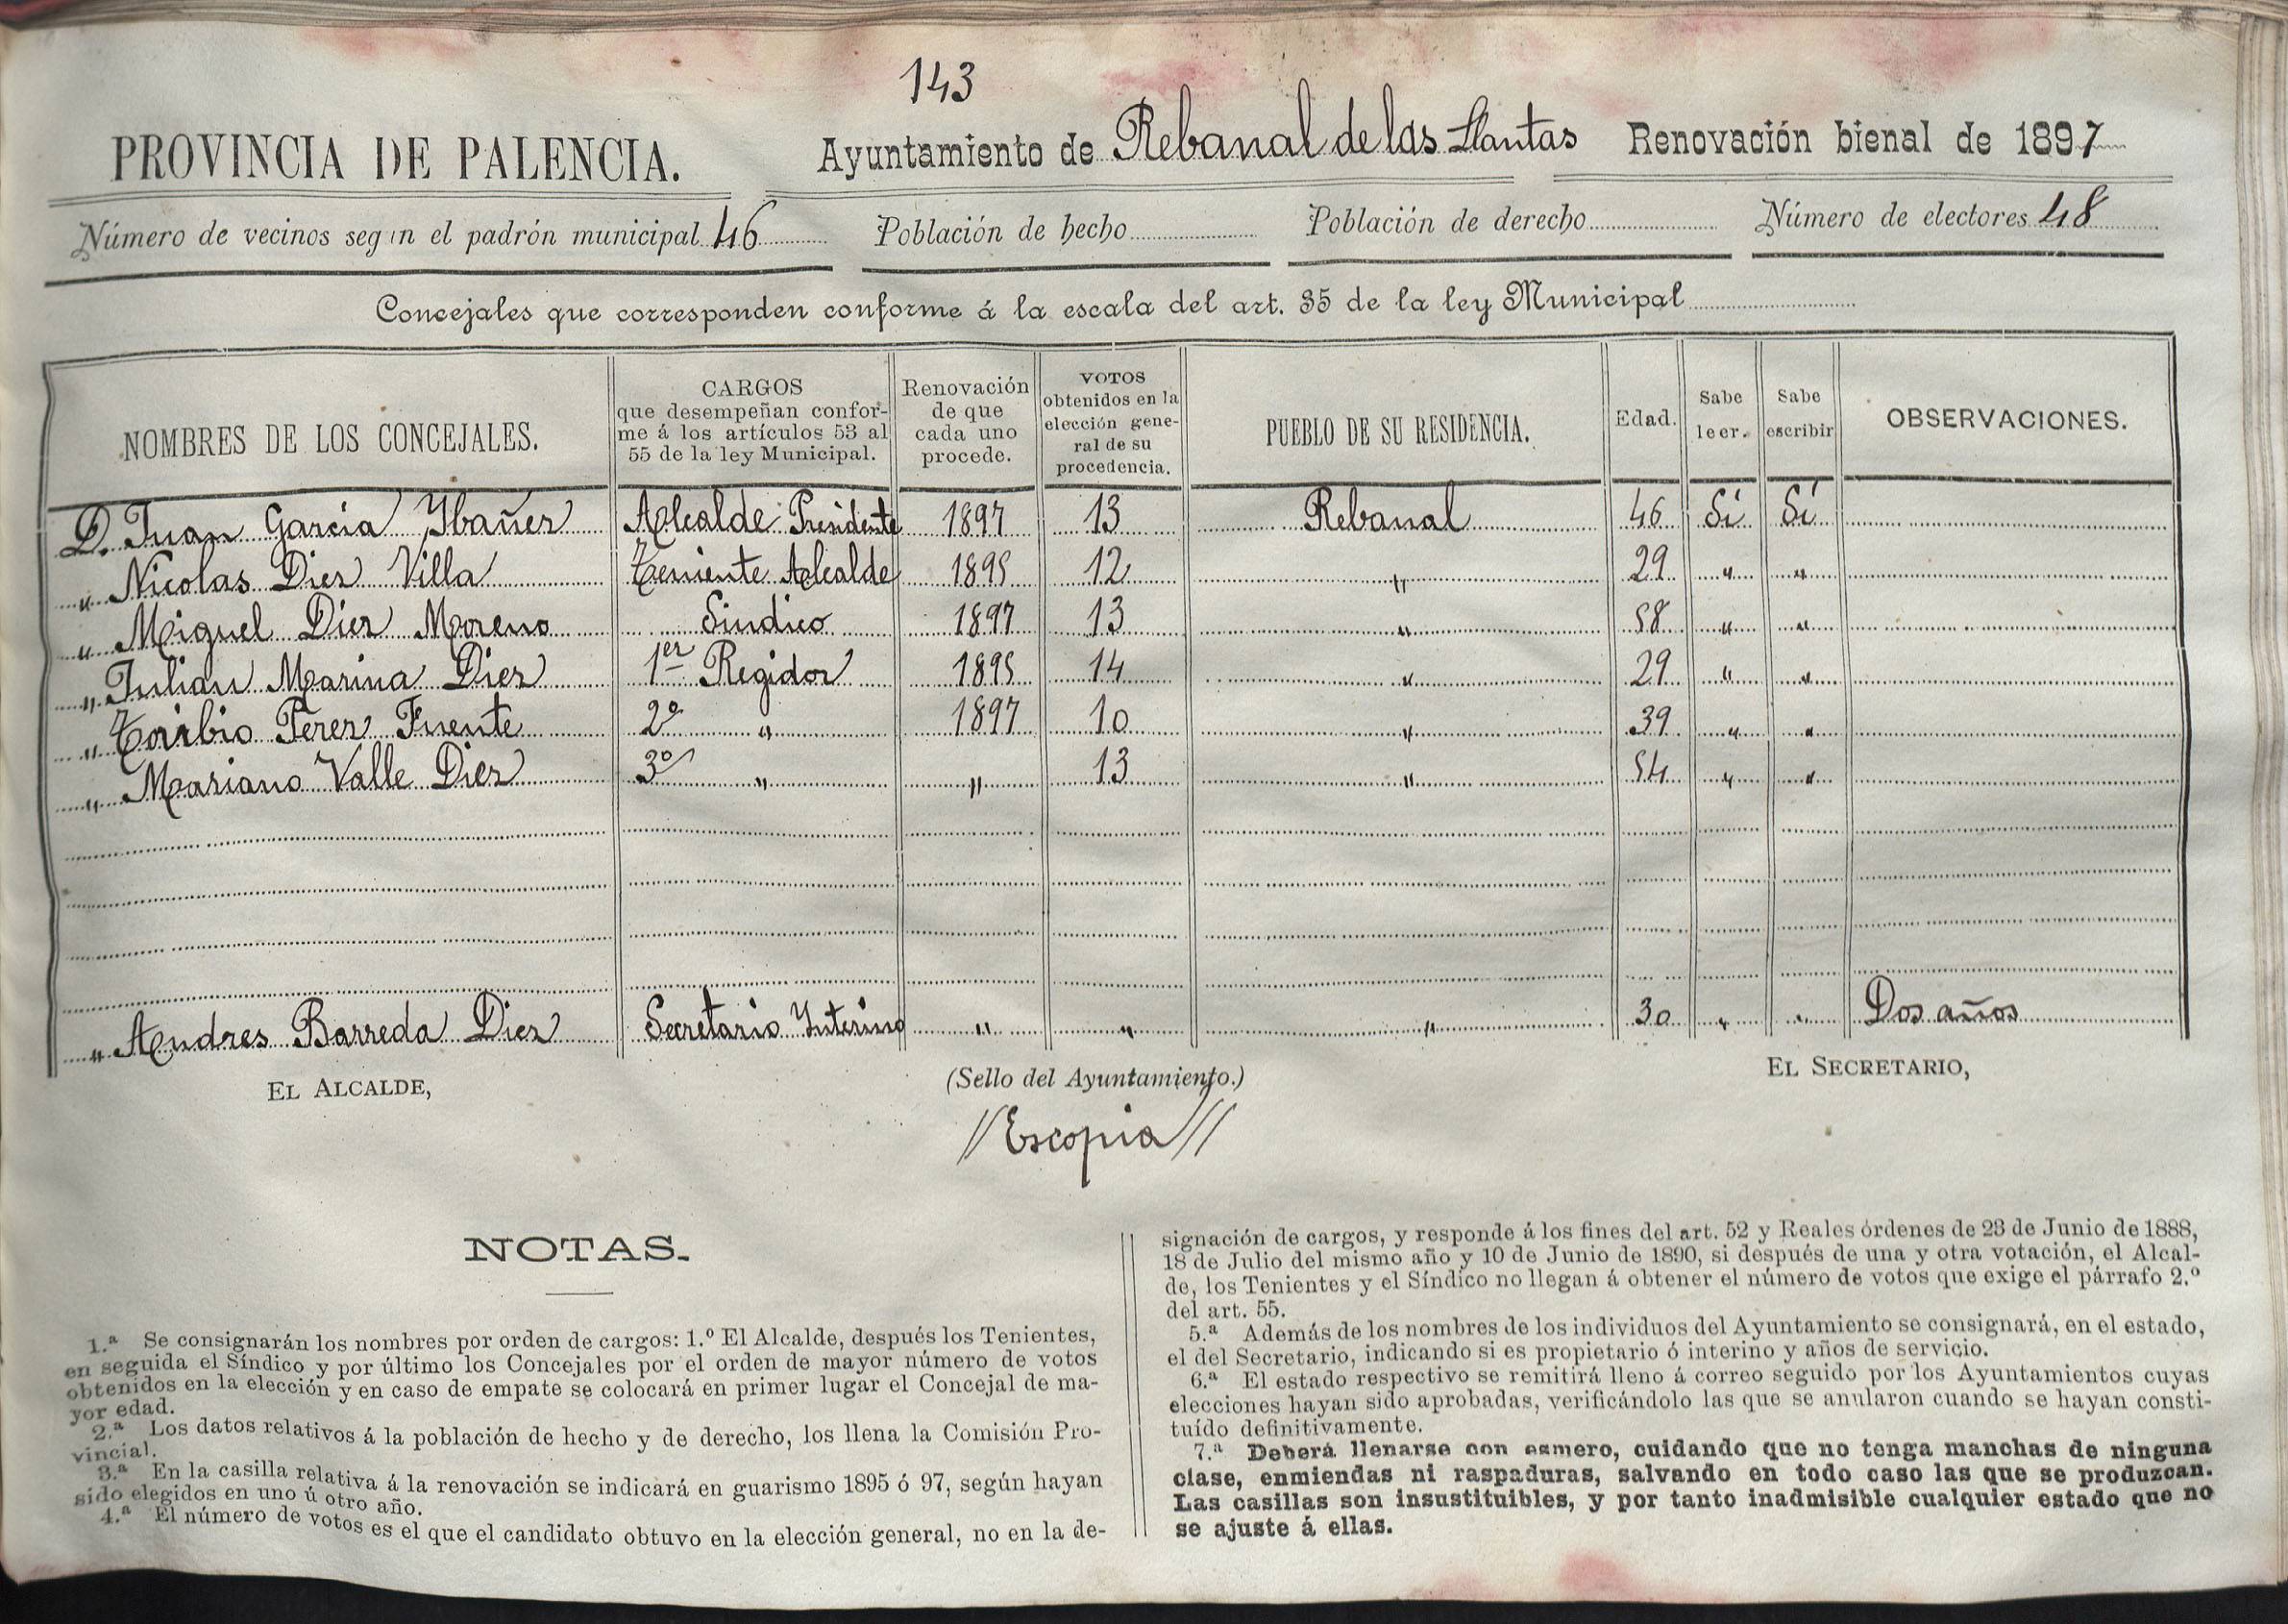 143
PROVINCIA DE PALENCIA. Ayuntamiento de Rebanal de las Llantas Renovación bienal de 1897
Número de vecinos seg n el padrón municipal 46 Población de hecho Población de derecho Número de electores 48
Concejales que corresponden conforme á la escala del art. 35 de la ley Municipal
NOMBRES DE LOS CONCEJALES.
CARGOS
que desempeñan confor-
me á los artículos 53 al
55 de la ley Municipal.
Renovación
de que
cada uno
procede.
VOTOS
obtenidos en la
elección gene-
ral de su
procedencia.
PUEBLO DE SU RESIDENCIA.
Edad.
Sabe
leer.
Sabe
escribir
OBSERVACIONES.
D. Juan García Ybañez Alcalde Presidente 1897 13 Rebanal 46 Sí Sí
" Nicolas Diez Villa Teniente Alcalde 1895 12 " 29 " "
" Miguel Diez Moreno Sindico 1897 13 " 58 " "
" Julian Marina Diez 1er Regidor 1895 14 " 29 " "
" Toribio Perez Fuente 2º " 1897 10 " 39 " "
" Mariano Valle Diez 3º " " 13 " 54 " "
" Andres Barreda Diez Secretario Ynterino " " " 30 " " Dos años
EL ALCALDE, (Sello del Ayuntamiento.) EL SECRETARIO,
//Escopia//
NOTAS.
1.ª Se consignarán los nombres por orden de cargos: 1.º El Alcalde, después los Tenientes,
en seguida el Síndico y por último los Concejales por el orden de mayor número de votos
obtenidos en la elección y en caso de empate se colocará en primer lugar el Concejal de ma-
yor edad.
2.ª Los datos relativos á la población de hecho y de derecho, los llena la Comisión Pro-
vincial.
3.ª En la casilla relativa á la renovación se indicará en guarismo 1895 ó 97, según hayan
sido elegidos en uno ú otro año.
4.ª El número de votos es el que el candidato obtuvo en la elección general, no en la de-
signación de cargos, y responde á los fines del art. 52 y Reales órdenes de 23 de Junio de 1888,
18 de Julio del mismo año y 10 de Junio de 1890, si después de una y otra votación, el Alcal-
de, los Tenientes y el Síndico no llegan á obtener el número de votos que exige el párrafo 2.º
del art. 55.
5.ª Además de los nombres de los individuos del Ayuntamiento se consignará, en el estado,
el del Secretario, indicando si es propietario ó interino y años de servicio.
6.ª El estado respectivo se remitirá lleno á correo seguido por los Ayuntamientos cuyas
elecciones hayan sido aprobadas, verificándolo las que se anularon cuando se hayan consti-
tuído definitivamente.
7.ª Deberá llenarse con esmero, cuidando que no tenga manchas de ninguna
clase, enmiendas ni raspaduras, salvando en todo caso las que se produzcan.
Las casillas son insustituibles, y por tanto inadmisible cualquier estado que no
se ajuste á ellas.